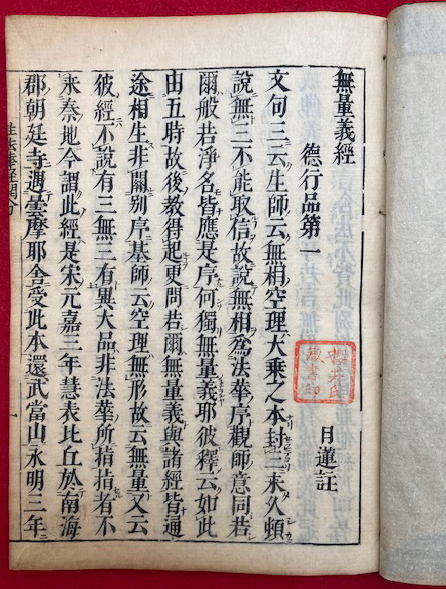 無量義經
德行品第一
月蓮註
文句三云生師云無相空理大乘之本封三來久頓
說無三不能取信故說無相爲法華序觀師意同若
爾般若淨名皆應是序何獨無量義耶彼釋云如此
由五時故後教得起更問若爾無量義與諸經皆通
途相生非關別序基師云空理無形故云無量又云
彼經不說有三無三有異大品非法華所指指者不
來秦地今謂此經是宋元嘉三年慧表比丘於南海
郡朝廷寺遇曇摩耶舍受此本還武當山永明三年